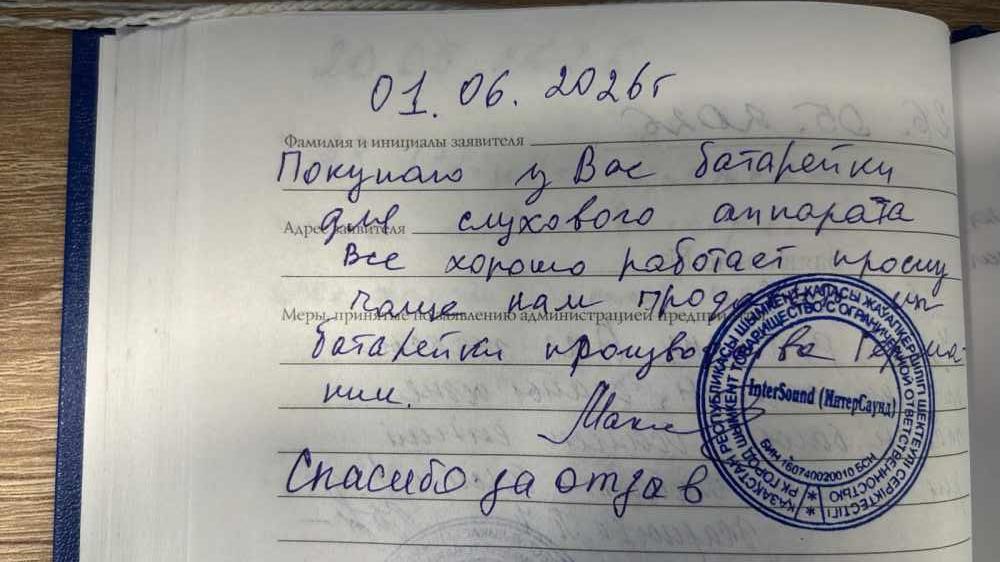 01.06.2026г
Фамилия и инициалы заявителя
Покупаю у Вас батарейки
Адрес заявителя
для слухового аппарата
Все хорошо работает прошу
чаще нам
Меры, принятые по заявлению администрацией
батарейки производства Герма-
нии.
Спасибо за отзыв
ҚАЗАҚСТАН РЕСПУБЛИКАСЫ ШЫМКЕНТ ҚАЛАСЫ ЖАУАПКЕРШІЛІГІ ШЕКТЕУЛІ СЕРІКТЕСТІГІ
РК ГОРОД ШЫМКЕНТ ТОВАРИЩЕСТВО С ОГРАНИЧЕННОЙ ОТВЕТСТВЕННОСТЬЮ
InterSound (ИнтерСаунд)
БИН 160740020010 БСН